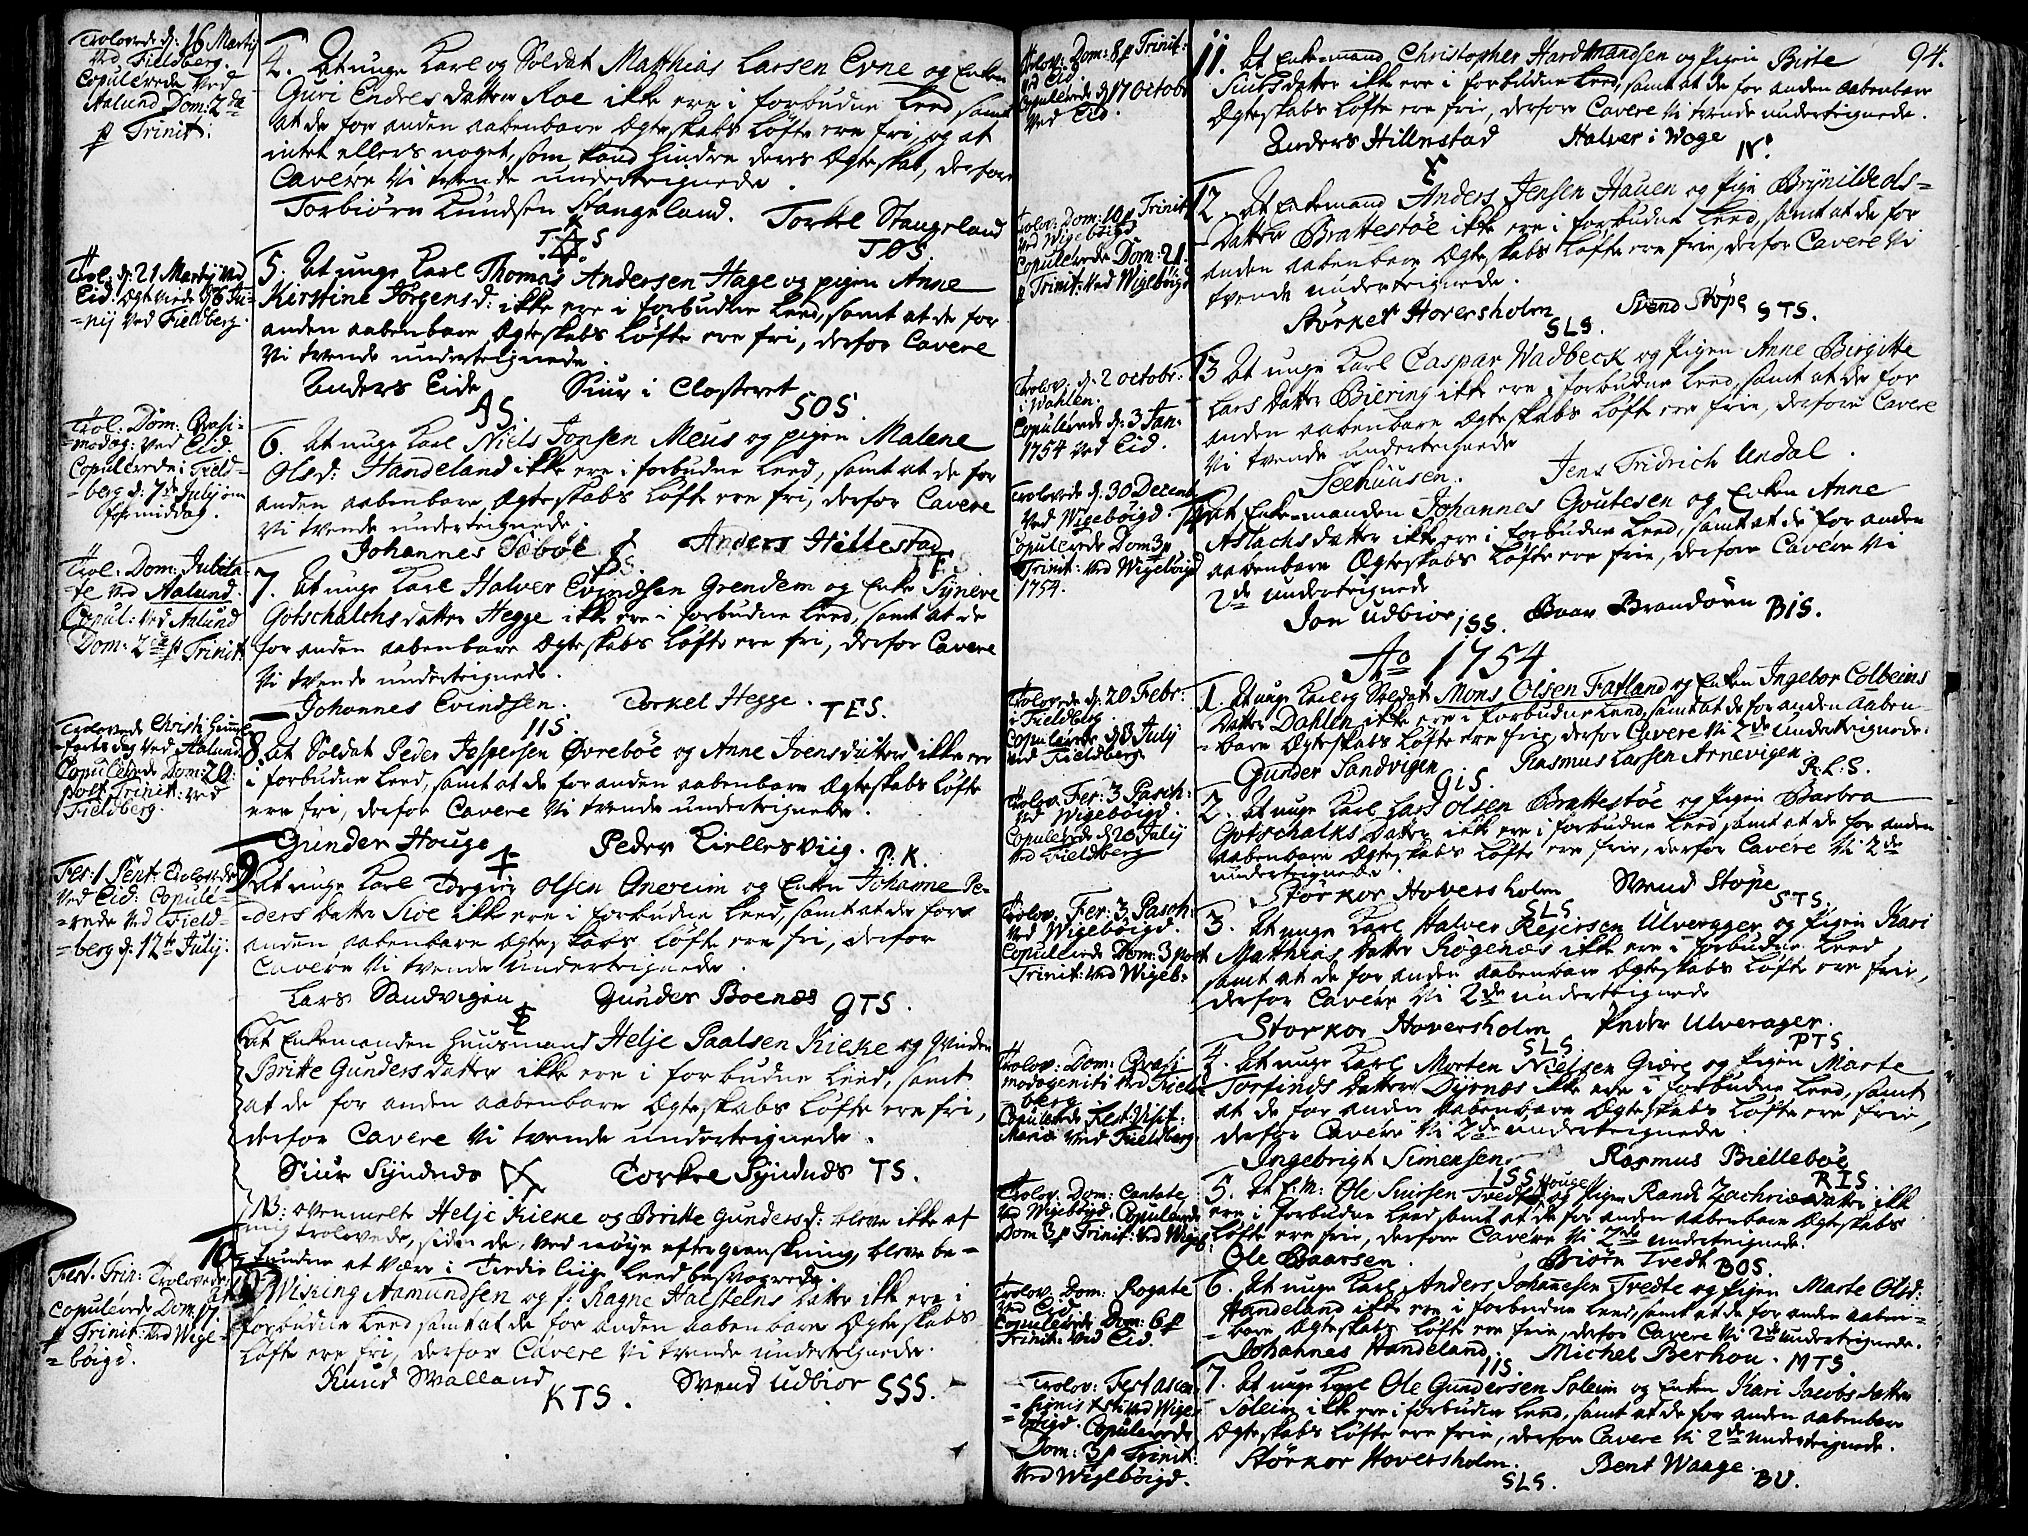 Trolovede d: 16 Martij
Ved Fieldberg.
Copulerede Ved
Aalund Dom: 2da
p Trinit:
4. At unge Karl og Soldat Matthias Larsen Evne og Enken
Guri Endresdatter Roe ikke ere i forbudne Leed samt
at de for anden aabenbare Ægteskabs Løfte ere fri, og at
intet ellers noget, som kand hindre deres Ægteskab, derfor
Cavere Vi tvende underteignede.
Torbiørn Knudsen Stangeland. Torkel Stangeland
TKS TOS
Trol: d: 21 Martij Ved
Eid. Ægteviede d: 6 Ju-
-nij Ved Fieldberg.
5. At unge Karl Thomas Andersen Hage og pigen Anne
Kirstine Jørgensd: ikke ere i forbudne Leed, samt at de for
anden aabenbare Ægteskabs Løfte ere fri, derfor Cavere
Vi tvende underteignede.
Anders Eide Siur i Closteret
AS. SOS.
Trol: Dom: Qvasi-
-modog: Ved Eid.
Copulerede i Field-
-berg d: 7de Julij om
formiddag.
6. At unge Karl Niels Jonsen Meus og pigen Malene
Olsd: Handeland ikke ere i forbudne Leed, samt at de for
anden aabenbare Ægteskabs Løfte ere fri, derfor Cavere
Vi tvende underteignede.
Johannes Sæbøe Anders Hillestad
Trol: Dom: Jubila-
-te Ved Aalund.
Copul: Ved Aalund
Dom: 2da p Trinit:
7. At unge Karl Halver Evindsen Grendem og Enke Synere
Gotschalchsdatter Hegge ikke ere i forbudne Leed, samt at de
for anden aabenbare Ægteskabs Løfte ere fri, derfor Cavere
Vi tvende underteignede.
Johannes Evindsen. Torkel Hegge. TES.
IIS
Trolovede Christi Himmel-
farts dag Ved Aalund
Copulerede Dom: 20:
post Trinit: Ved
Fieldberg.
8. At Soldat Peder Jespersen Øvrebøe og Anne Ivensdatter ikke ere
i forbudne Leed, samt at de for anden aabenbare Ægteskabs Løfte
ere fri, derfor Cavere Vi tvende underteignede.
Gunder Houge Peder Kiellesviig. P: K.
Fer: 1 Pent: Trolovede
Ved Eid: Copule-
-rede Ved Field-
-berg d: 12te July:
9. At unge Karl Olsen Anereim og Enken Johanne Pe-
-ders datter Sioe ikke ere i forbudne Leed, samt at de for
anden aabenbare Ægteskabs Løfte ere fri, derfor
Cavere Vi tvende underteignede.
Lars Sandvigen Gunder Boenæs GTS.
At Enkemanden Huusmand Helje Paalsen Kieke og Qvinden
Britte Gundersdatter ikke ere i forbudne Leed, samt
at de for anden aabenbare Ægteskabs Løfte ere fri,
derfor Cavere Vi tvende underteignede.
Siur Syndnæs Torkel Syndnæs TS.
NB: ovenmelte Helje Kieke og Britte Gundersd: bleve ikke af
mig trolovede, siden de, Ved nøye eftergranskning, bleve be-
-fundne at Være i Tredie Liige Leed besvogrede.
Fest. Trin: Trolovede
copulerede Dom: 17
p Trinit: Ved Wige-
-bøigd.
10. Wiking Aamundsen og p: Ragne Halsteins datter ikke ere i
forbudne Leed samt at de for anden aabenbare Ægteskabs
Løfte ere fri, derfor Cavere Vi tvende underteignede.
Knud Walland Svend Udbior SSS.
KTS.
94.
Trolov: Dom: 8 p Trinit:
Ved Eid
Copulerede d: 17 Octobr
Ved Eid.
11. At Enkemand Christopher Hardtmandsen og Pigen Birte
Siursdatter ikke ere i forbudne Leed, samt at de for anden aabenbare
Ægteskabs Løfte ere frie, derfore Cavere Vi tvende underteignede.
Anders Hillestad Halver i Woge
Trolov: Dom: 10 p Trinit
Ved Wigebøigd
Copulerede Dom: 21.
p Trinit: Ved Wigebøigd
12. At Enkemand Anders Jensen Hauen og Pige Brynildeds-
-datter Brattestøe ikke ere i forbudne Leed, samt at de for
anden aabenbare Ægteskabs Løfte ere frie, derfor Cavere Vi
tvende underteignede.
Størker Hoversholm Svend Støpe STS.
SLS.
Trolov: d: 2 Octobr:
i Wahlen.
Copulerede d: 3 Jan:
1754 Ved Eid.
13 At unge Karl Caspar Wadbeck og Pigen Anne Birgitte
Lars datter Biering ikke ere i forbudne Leed, samt at de for
anden aabenbare Ægteskabs Løfte ere frie, derfore Cavere
Vi tvende underteignede
Seehuusen. Jens Fridrich Undal.
Trolovede d: 30 Decemb
Ved Wigebøigd
Copulerede Dom 3 p
Trinit: Ved Wigebøigd
1754.
14 At Enke-manden Johannes Goutesen og Enken Anne
Aslachsdatter ikke ere i forbudne Leed, samt at de for anden
aabenbare Ægteskabs Løfte ere frie, derfore Cavere Vi
2de underteignede
Jon Udbior ISS. Baar Brandøen BIS.
Ao 1754.
Trolovede d: 20 Febr:
i Fieldberg.
Copulerede d: 3 July
Ved Fieldberg.
1. At unge Karl og Soldat Mons Olsen Fatland og Enken Ingebor Colbeins
datter Dahlen ikke ere i forbudne Leed, samt at de for anden aaben-
-bare Ægteskabs Løfte ere frie, derfor Cavere Vi 2de underteignede.
Gunder Sandvigen Rasmus Larsen Arnevigen.
GIS. R: L: S.
Trolov: Fer: 3 Pasch:
Ved Wigebøigd.
Copulerede d: 20 July
Ved Fieldberg
2. At unge Karl Lars Olsen Brattestøe og Pigen Barbra
Gotschalks datter ikke ere i forbudne Leed samt at de for anden
aabenbare Ægteskabs Løfte ere frie, derfor Cavere Vi 2de
underteignede.
Størkor Hovershollm Svend Støpe
SLS STS.
Trolov. Fer: 3 Pasch
Ved Wigebøigd.
Copulerede Dom: 3 post
Trinit: Ved Wigeb-
3. At unge Karl Halver Rejersen Ulverager og Pigen Kari
Matthias datter Rogenæs ikke ere i forbudne Leed
samt at de for anden aabenbare Ægteskabs Løfte ere frie,
derfor Cavere Vi 2de underteignede
Storkor Hoversholm Peder Ulverager.
SLS PTS
Trolov: Dom: Qvasi
modogeniti Ved Field-
-berg
Copulerede Fest: Visit:
Mariæ Ved Fieldberg
4. At unge Karl Morten Nielsen Giøre og Pigen Marte
Torfinds datter Dyrnæs ikke ere i forbudne Leed, samt
at de for anden aabenbare Ægteskabs Løfte ere frie,
derfor Cavere Vi 2de underteignede.
Ingebrigt Simensen Rasmus Biellebøe
ISS RIS.
Trolov. Dom: Cantate
Ved Wigebøigd: Copulerede
Dom 3 p Trinit: Ved Wigeb
5. At E: M: Ole Siursen Tvedt og Pigen Randi Zachriædatter ikke
Houge
ere i forbudne Leed samt at de for anden aabenbare Ægteskabs
Løfte ere frie, derfore Cavere Vi 2de underteignede.
Ole Baarsen. Biørn Tvedt BOS.
Trolov: Dom: Rogate
Ved Eid
Copulerede Dom: 6 p
Trinit: Ved Eid.
6. At unge Karl Anders Johanesen Tvedte og Pigen Marte Olsd:
Handeland ikke ere i forbudne Leed, samt at de for anden aaben-
-bare Ægteskabs Løfte ere frie, derfor Cavere Vi 2de underteignede.
Johannes Handeland. Michel Berhou. MTS.
IIS
Trolov: Fest ascen-
-sionis Xsti Ved Wige-
-bøigd. Copulerede
Dom: 3 p Trinit:
Ved Wigebøigd.
7. At unge Karl Ole Gundersen Soleim og Enken Kari Jacobs datter
Soleim ikke ere i forbudne Leed, samt at de for anden aabenbare
Ægteskabs Løfte ere frie, derfor Cavere Vi 2de underteignede.
Størkor Hoversholm. Bent Waage.
SLS. BU.